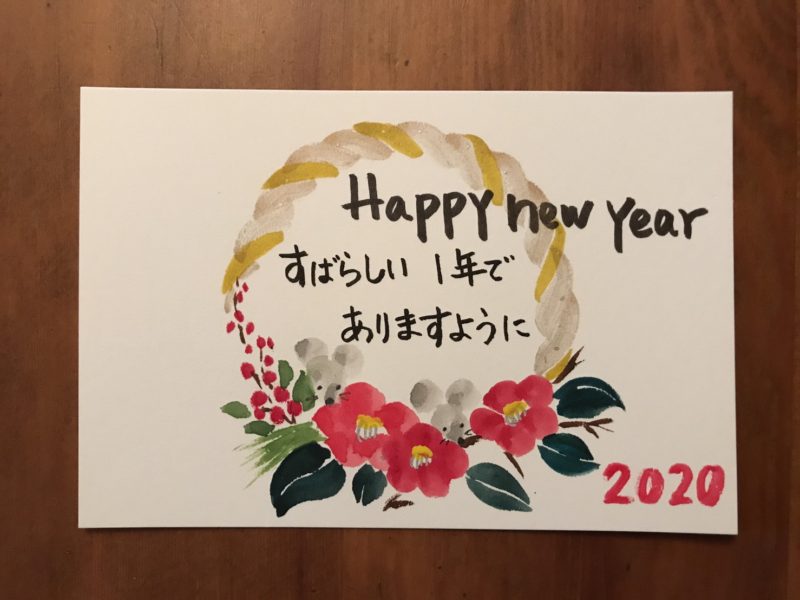 Happy new year
すばらしい 1年で
ありますように
2020